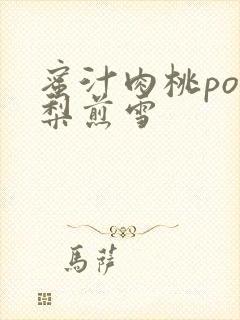 蜜汁肉桃po
梨煎雪
馬薩